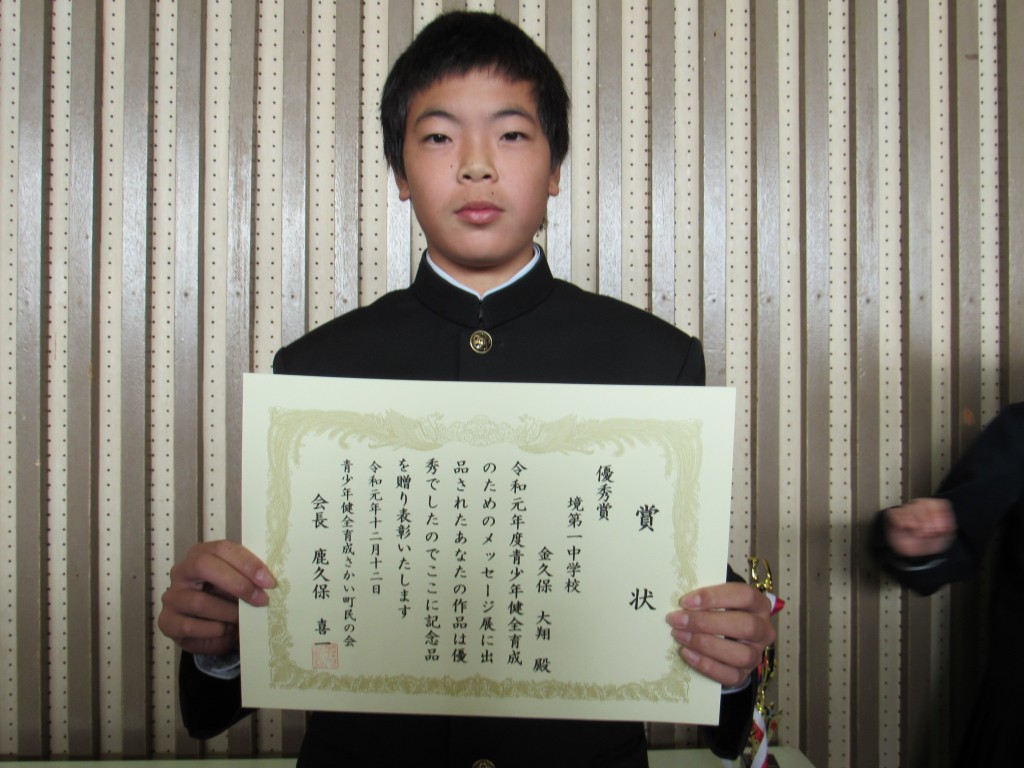 賞状
優秀賞
境第一中学校
金久保 大翔 殿
令和元年度青少年健全育成
のためのメッセージ展に出
品されたあなたの作品は優
秀でしたのでここに記念品
を贈り表彰いたします
令和元年十二月十二日
青少年健全育成さかい町民の会
会長 鹿久保 喜一